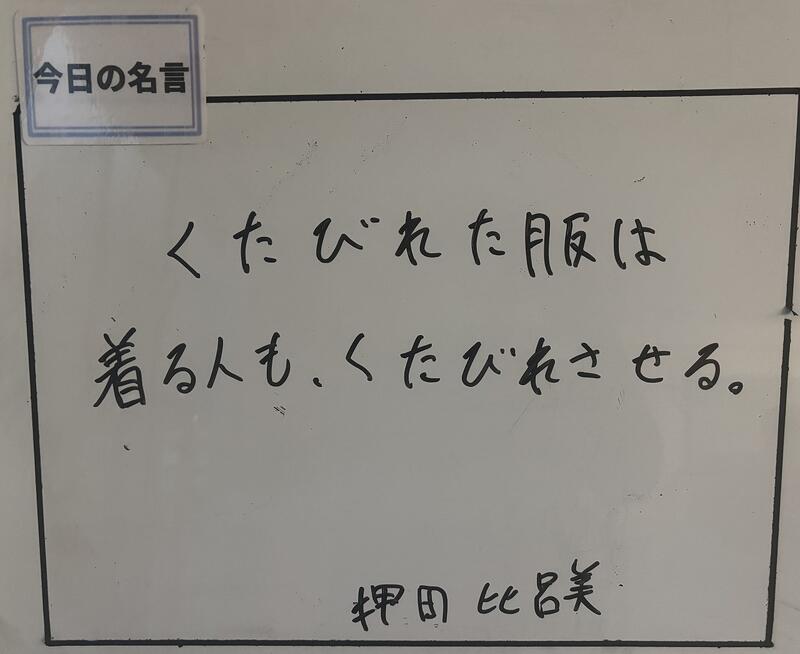 今日の名言
くたびれた服は
着る人も、くたびれさせる。
押田 比呂美